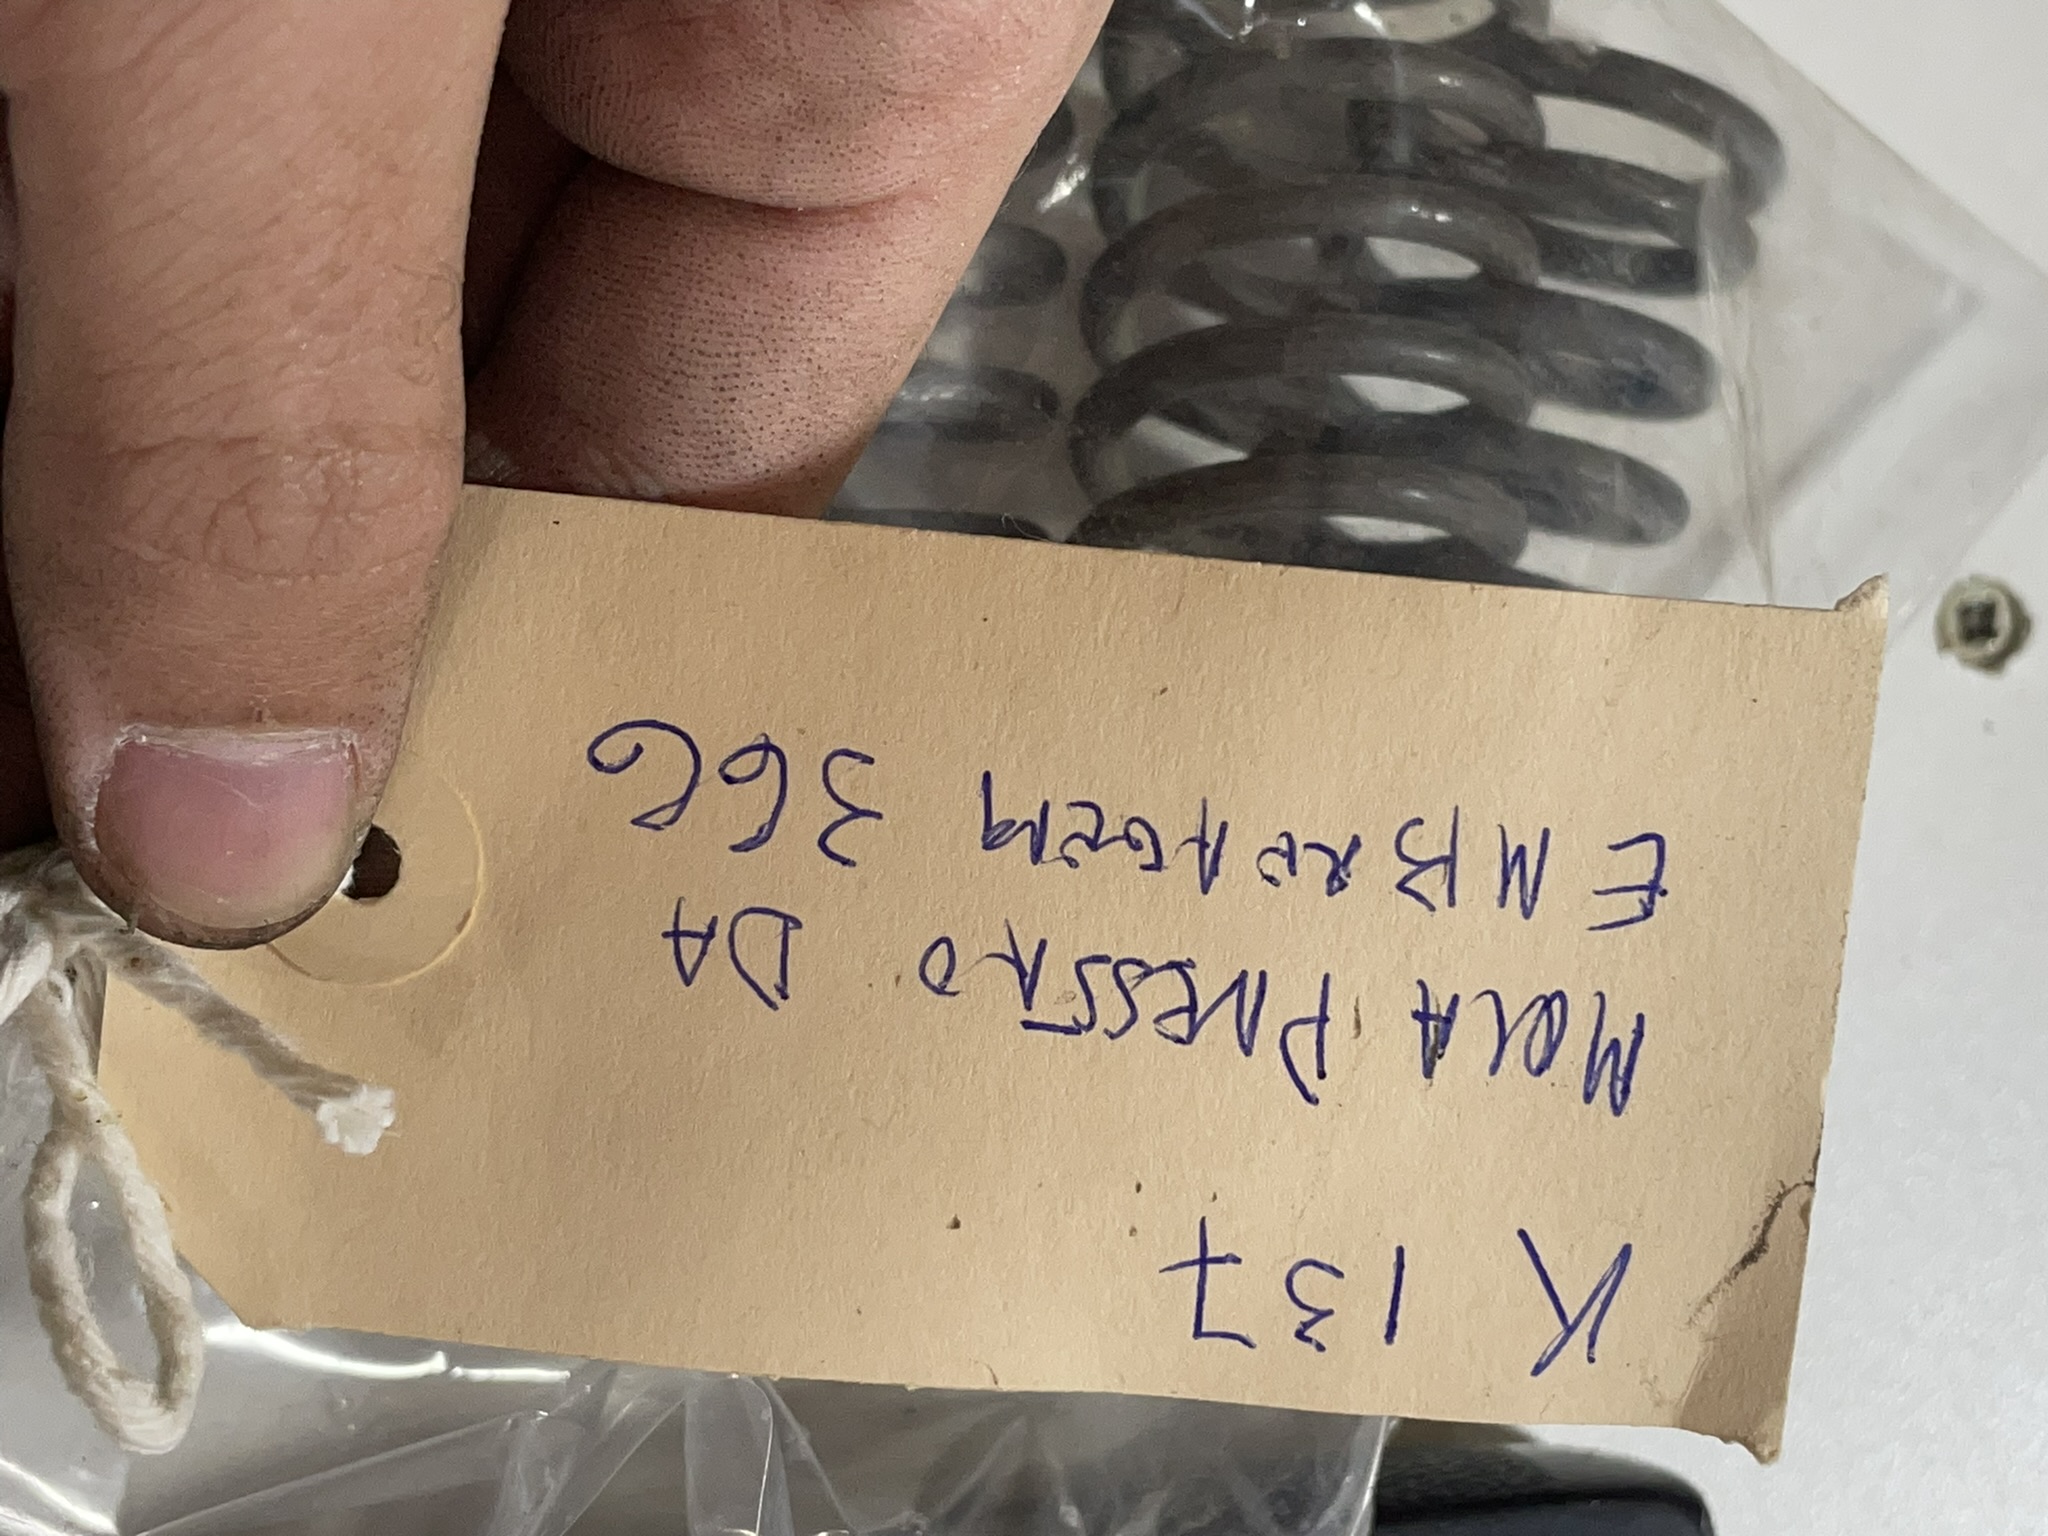 K 137
MOLA PRESSÃO DA
EMBREAGEM 366